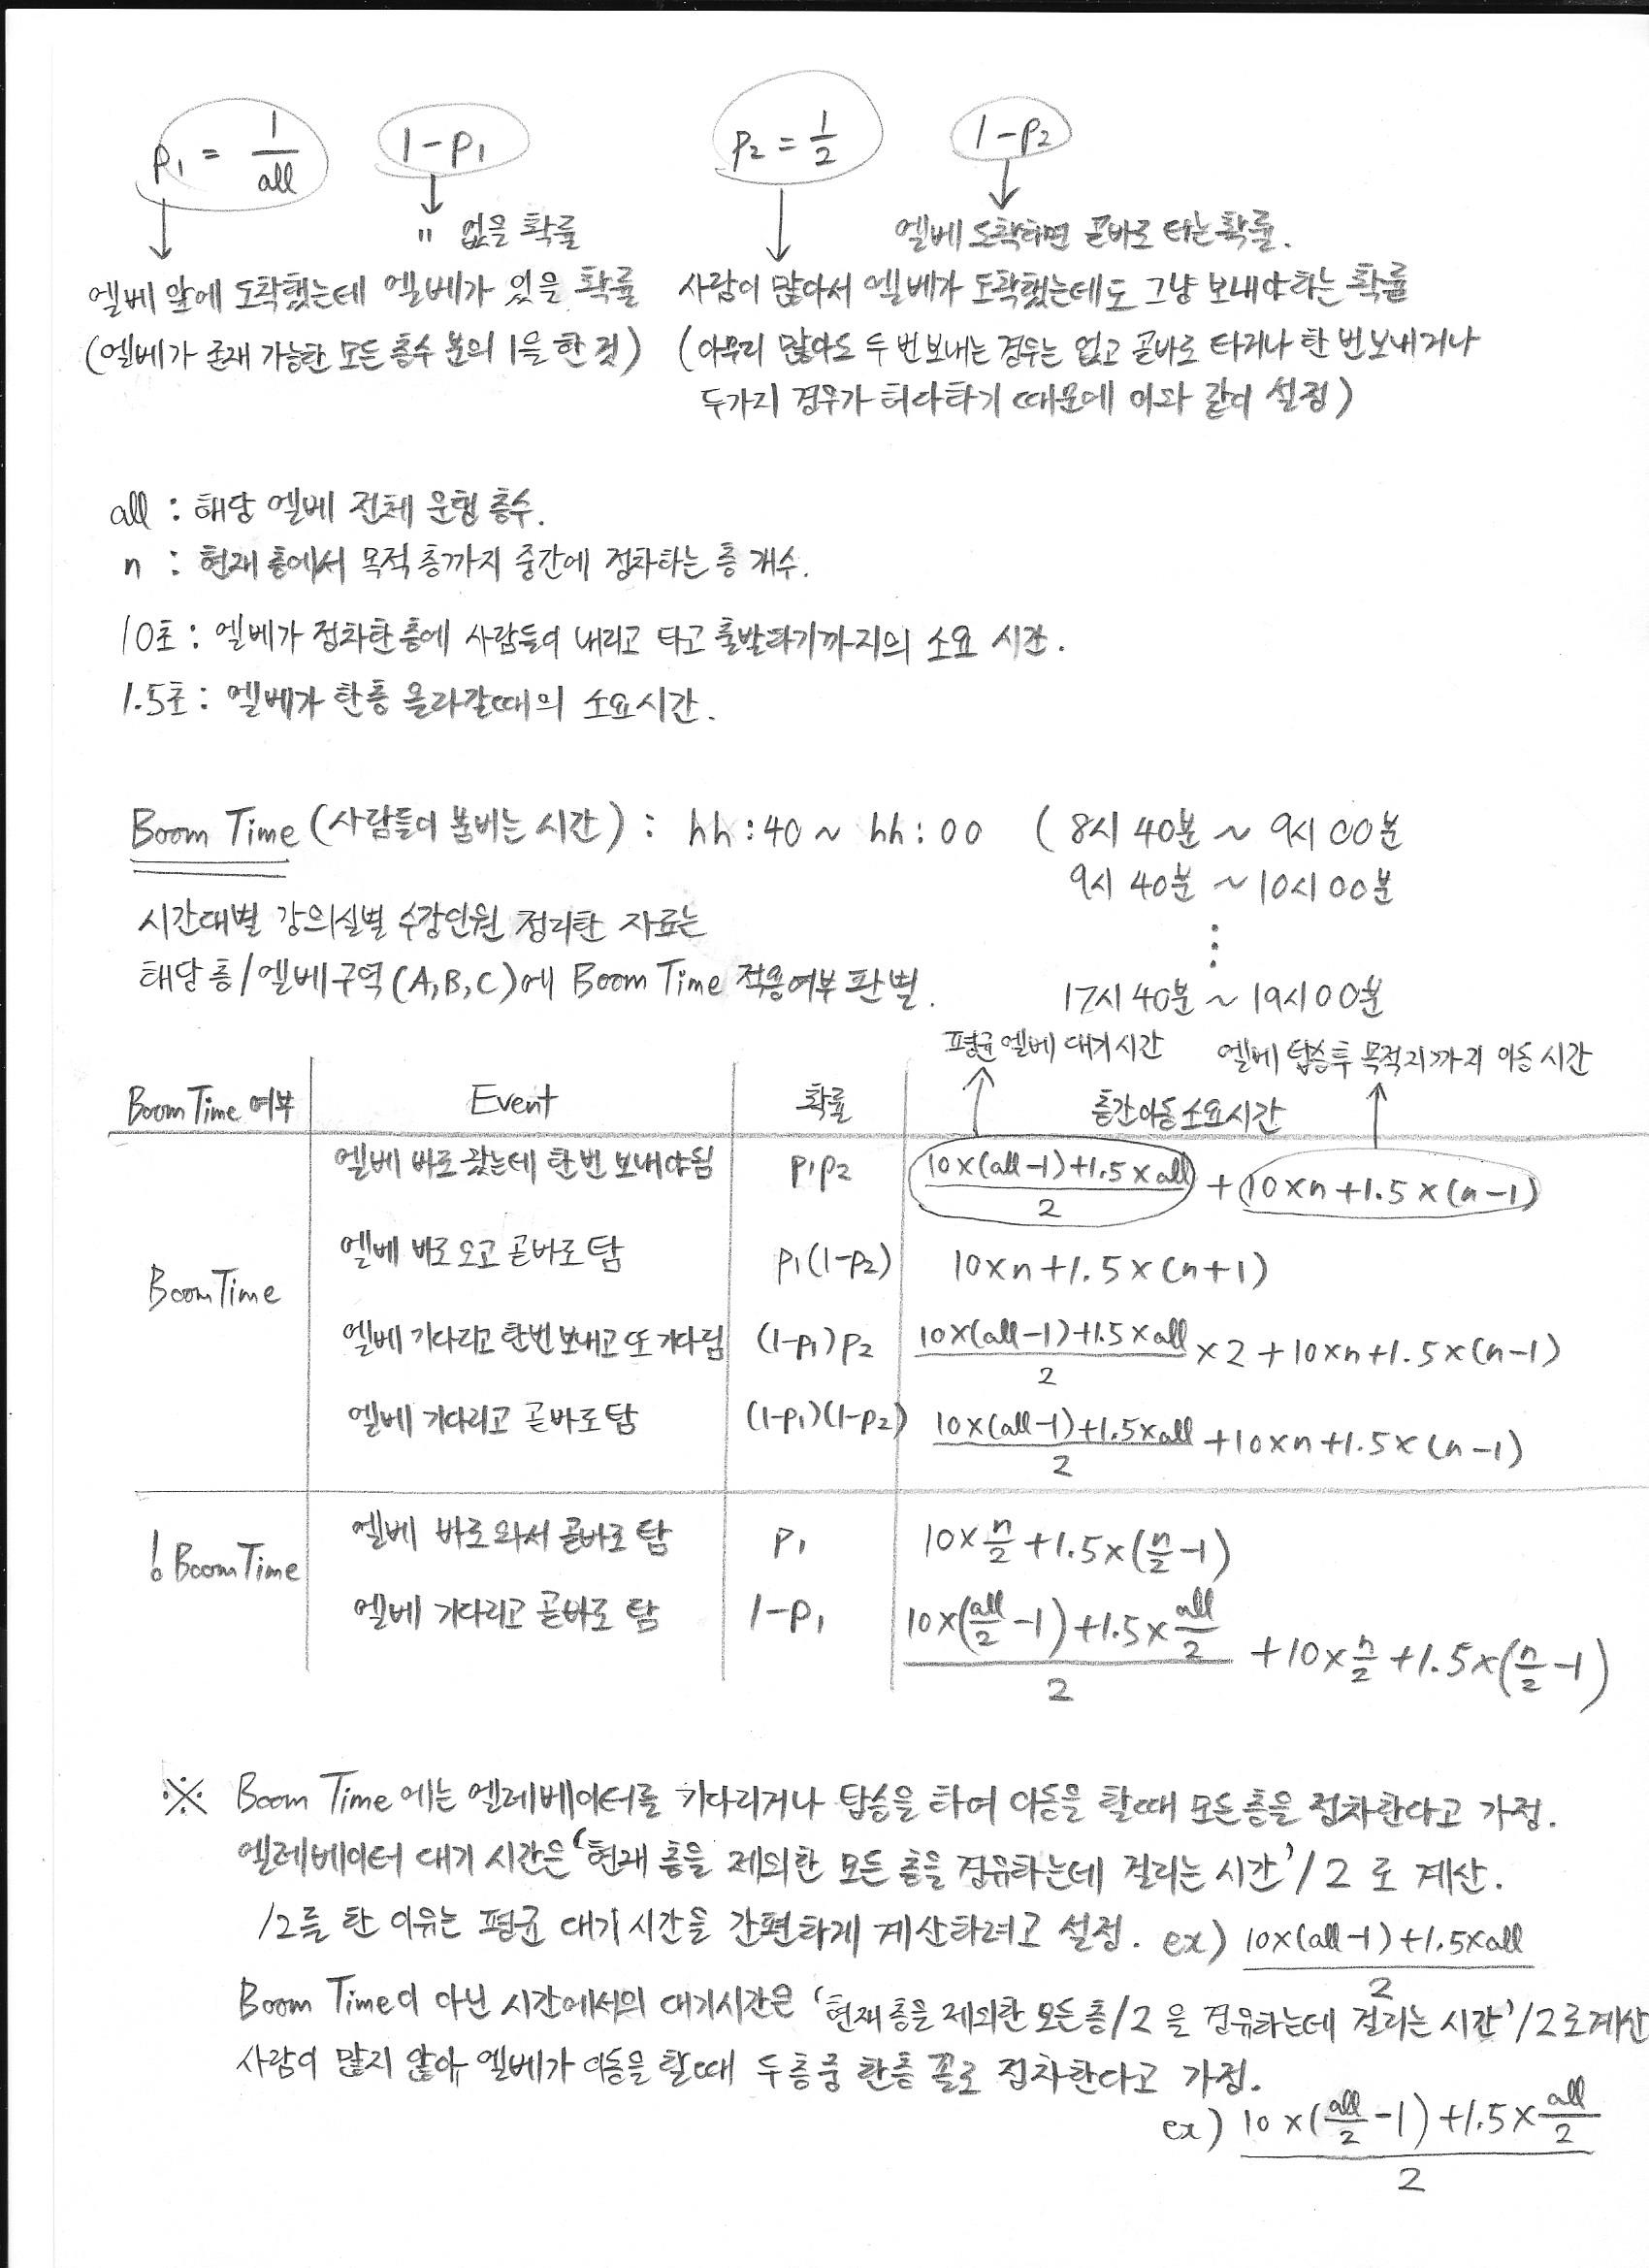 p₁ = 1/all   1-p₁   p₂ = 1/2   1-p₂
〃 없을 확률   엘베 도착하면 곧바로 타는 확률.
엘베 앞에 도착했는데 엘베가 있을 확률   사람이 많아서 엘베가 도착했는데도 그냥 보내야하는 확률
(엘베가 존재 가능한 모든 층수 분의 1을 한 것)   (아무리 많아도 두 번 보내는 경우는 없고 곧바로 타거나 한 번 보내거나
두가지 경우가 허다하기 때문에 이와 같이 설정)
all : 해당 엘베 전체 운행 층수.
n : 현재 층에서 목적 층까지 중간에 정차하는 층 개수.
10초 : 엘베가 정차한 층에 사람들이 내리고 타고 출발하기까지의 소요 시간.
1.5초 : 엘베가 한층 올라갈때의 소요시간.
Boom Time (사람들이 붐비는 시간) : hh:40 ~ hh:00 ( 8시 40분 ~ 9시 00분
9시 40분 ~ 10시 00분
⋮
시간대별 강의실별 수강인원 정리한 자료는
해당 층/엘베구역(A,B,C)에 Boom Time 적용여부 판별.
17시 40분 ~ 19시 00분
평균 엘베 대기시간   엘베 탑승후 목적지까지 이동 시간
Boom Time 여부   Event   확률   층간이동 소요시간
엘베 바로 왔는데 한번 보내야됨   p₁p₂   (10×(all-1)+1.5×all)/2 + 10×n+1.5×(n-1)
BoomTime   엘베 바로 오고 곧바로 탐   p₁(1-p₂)   10×n+1.5×(n+1)
엘베 기다리고 한번 보내고 또 기다림   (1-p₁)p₂   (10×(all-1)+1.5×all)/2 ×2+10×n+1.5×(n-1)
엘베 기다리고 곧바로 탐   (1-p₁)(1-p₂)   (10×(all-1)+1.5×all)/2 +10×n+1.5×(n-1)
! BoomTime   엘베 바로 와서 곧바로 탐   p₁   10×n/2+1.5×(n/2-1)
엘베 기다리고 곧바로 탐   1-p₁   (10×(all/2-1)+1.5×all/2)/2 +10×n/2+1.5×(n/2-1)
※ Boom Time에는 엘레베이터를 기다리거나 탑승을 하여 이동을 할때 모든층을 정차한다고 가정.
엘레베이터 대기 시간은 '현재 층을 제외한 모든 층을 경유하는데 걸리는 시간'/2 로 계산.
/2를 한 이유는 평균 대기 시간을 간편하게 계산하려고 설정. ex) (10×(all-1)+1.5×all)/2
Boom Time이 아닌 시간에서의 대기시간은 '현재 층을 제외한 모든층/2 을 경유하는데 걸리는 시간'/2로계산
사람이 많지 않아 엘베가 이동을 할때 두 층중 한층 꼴로 정차한다고 가정.
ex) (10×(all/2-1)+1.5×all/2)/2